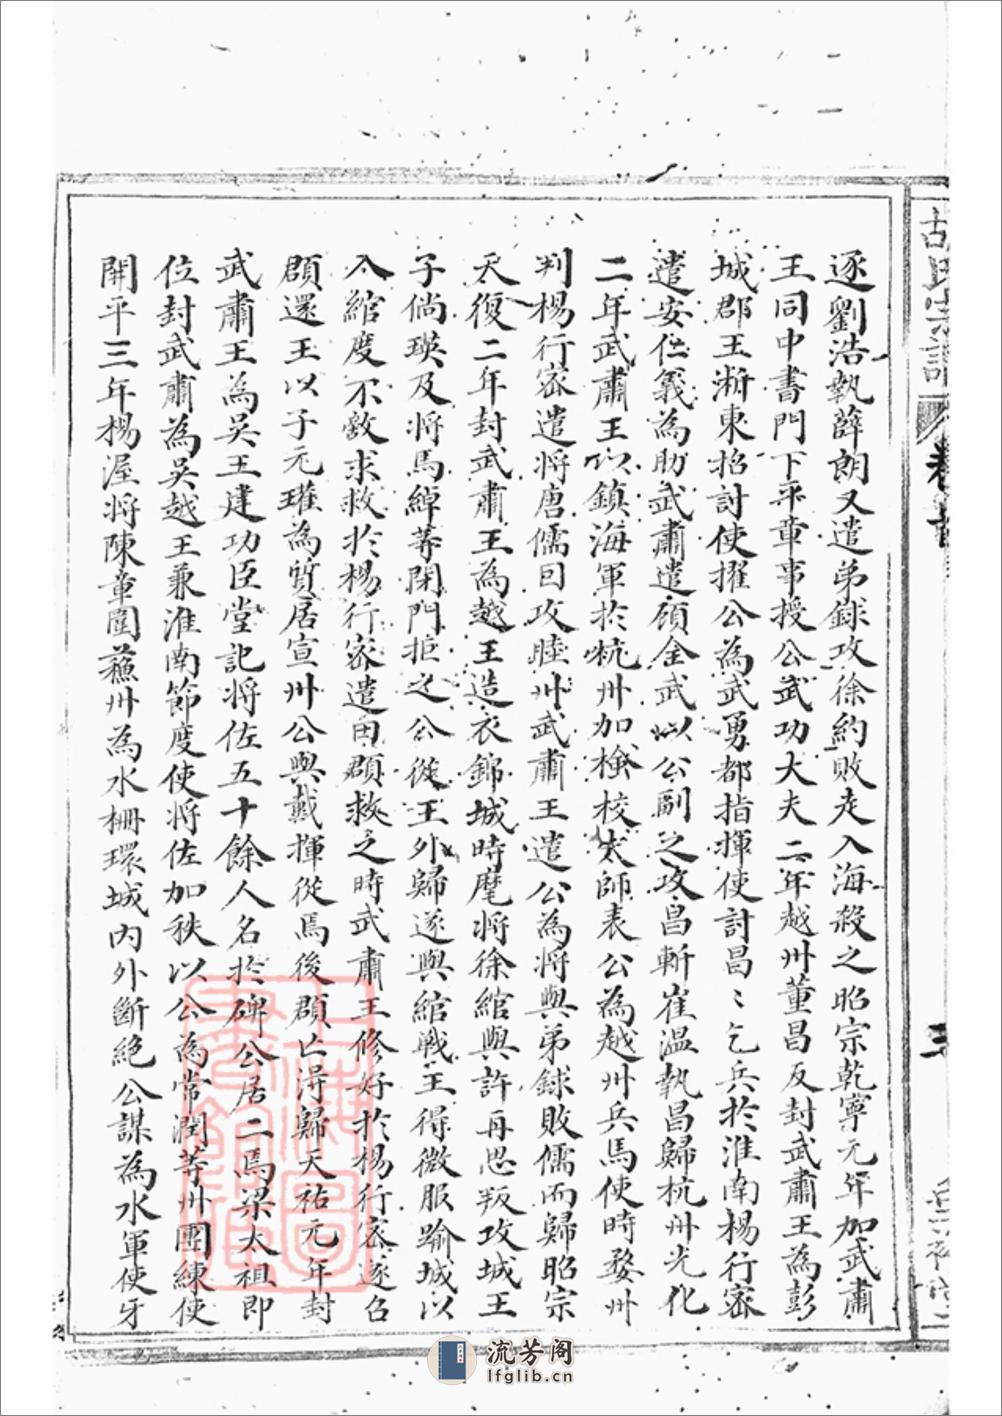 胡氏宗譜
卷首
逐劉浩執薛朗又遣弟銶攻徐約敗走入海殺之昭宗乾寧元年加武肅
王同中書門下平章事授公武功大夫二年越州董昌反封武肅王為彭
城郡王淅東招討使擢公為武勇都指揮使討昌〻乞兵於淮南楊行密
遣安仁義為助武肅遣顧全武以公副之攻昌斬崔温執昌歸杭州光化
二年武肅王以鎮海軍於杭州加檢校太師表公為越州兵馬使時婺州
判楊行密遣將唐儒囙攻睦州武肅王遣公為將與弟銶敗儒而歸昭宗
天復二年封武肅王為越王造衣錦城時麾將徐綰與許再思叛攻城王
子倘瑛及將馬綽等閉門拒之公從王外歸遂與綰戰王得微服踰城以
入綰度不敵求救於楊行密遣田頵救之時武肅王修好於楊行密遂召
頵還王以子元瓘為質居宣州公與戴揮從焉後頵亡淂歸天祐元年封
武肅王為吳王建功臣堂記將佐五十餘人名於碑公居二焉梁太祖即
位封武肅為吳越王兼淮南節度使將佐加秩以公為常潤等州團練使
開平三年楊渥將陳章圍蘇州為水柵環城內外斷絕公謀為水軍使牙
流芳阁
lfglib.cn